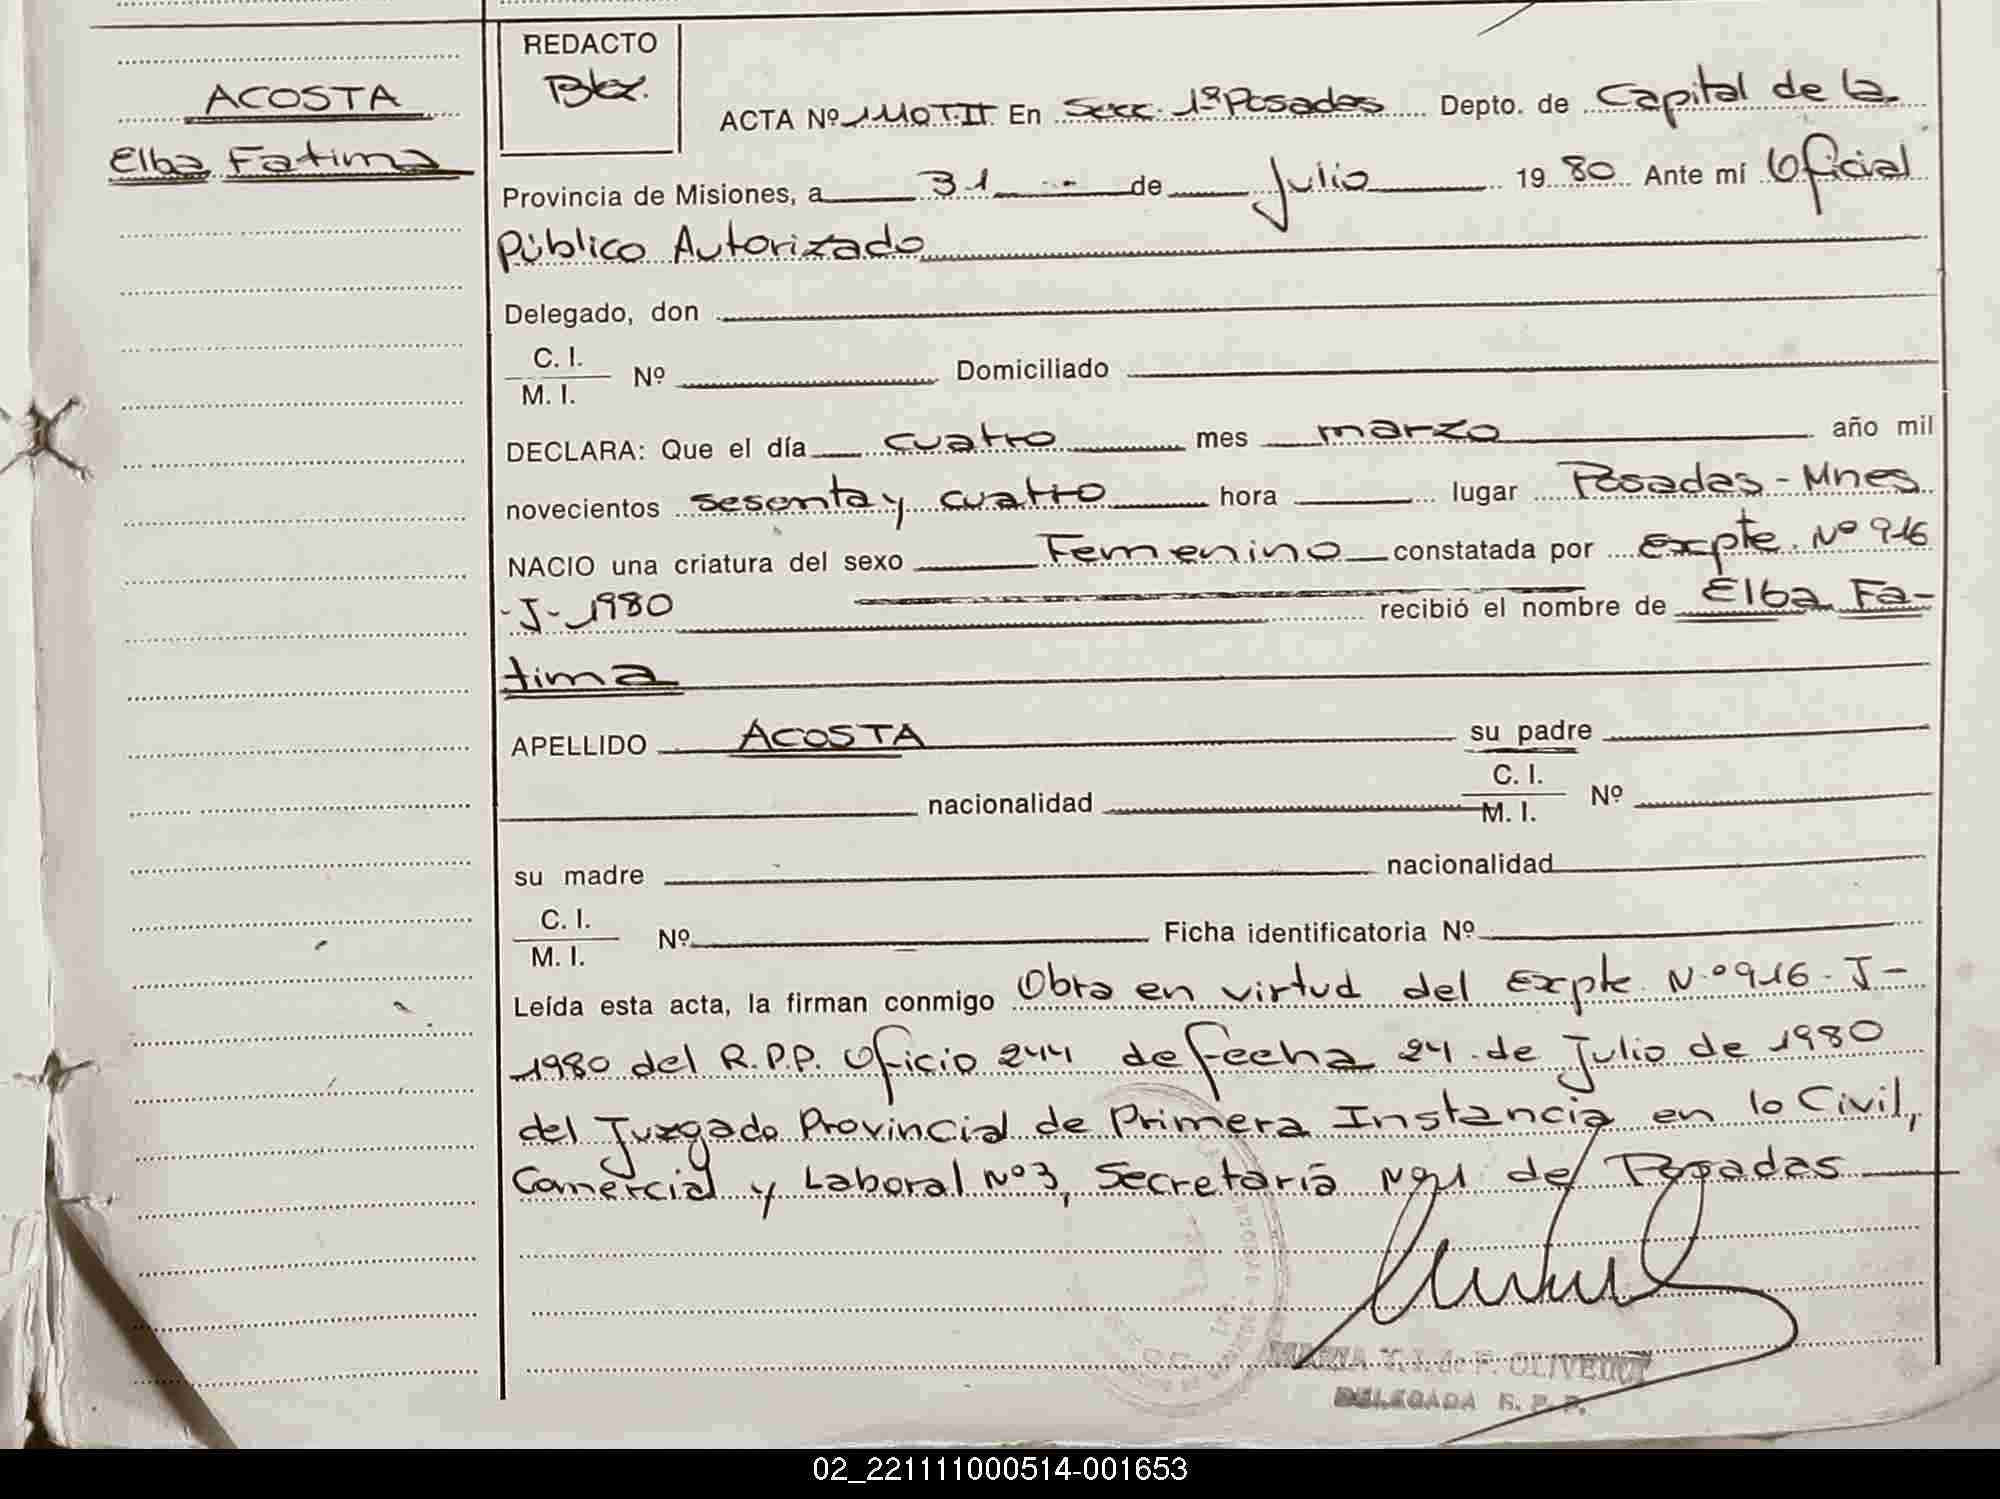 ACOSTA
Elba Fatima
REDACTO
ACTA Nº 110 T.II En Secc. 1ª Posadas Depto. de Capital de la
Provincia de Misiones, a 31 de Julio 1980 Ante mí Oficial
Público Autorizado
Delegado, don
C. I.
M. I. Nº Domiciliado
DECLARA: Que el día cuatro mes marzo año mil
novecientos sesenta y cuatro hora lugar Posadas - Mnes
NACIO una criatura del sexo Femenino constatada por Expte. Nº 916
-J-1980 recibió el nombre de Elba Fa-
tima
APELLIDO ACOSTA su padre
nacionalidad C. I.
M. I. Nº
su madre nacionalidad
C. I.
M. I. Nº Ficha identificatoria Nº
Leída esta acta, la firman conmigo Obra en virtud del Expte Nº 916-J-
1980 del R.P.P. Oficio 244 de fecha 24 de Julio de 1980
del Juzgado Provincial de Primera Instancia en lo Civil,
Comercial y Laboral Nº 3, Secretaría Nº 1 de Posadas
DELEGADA R. P. P.
02_221111000514-001653